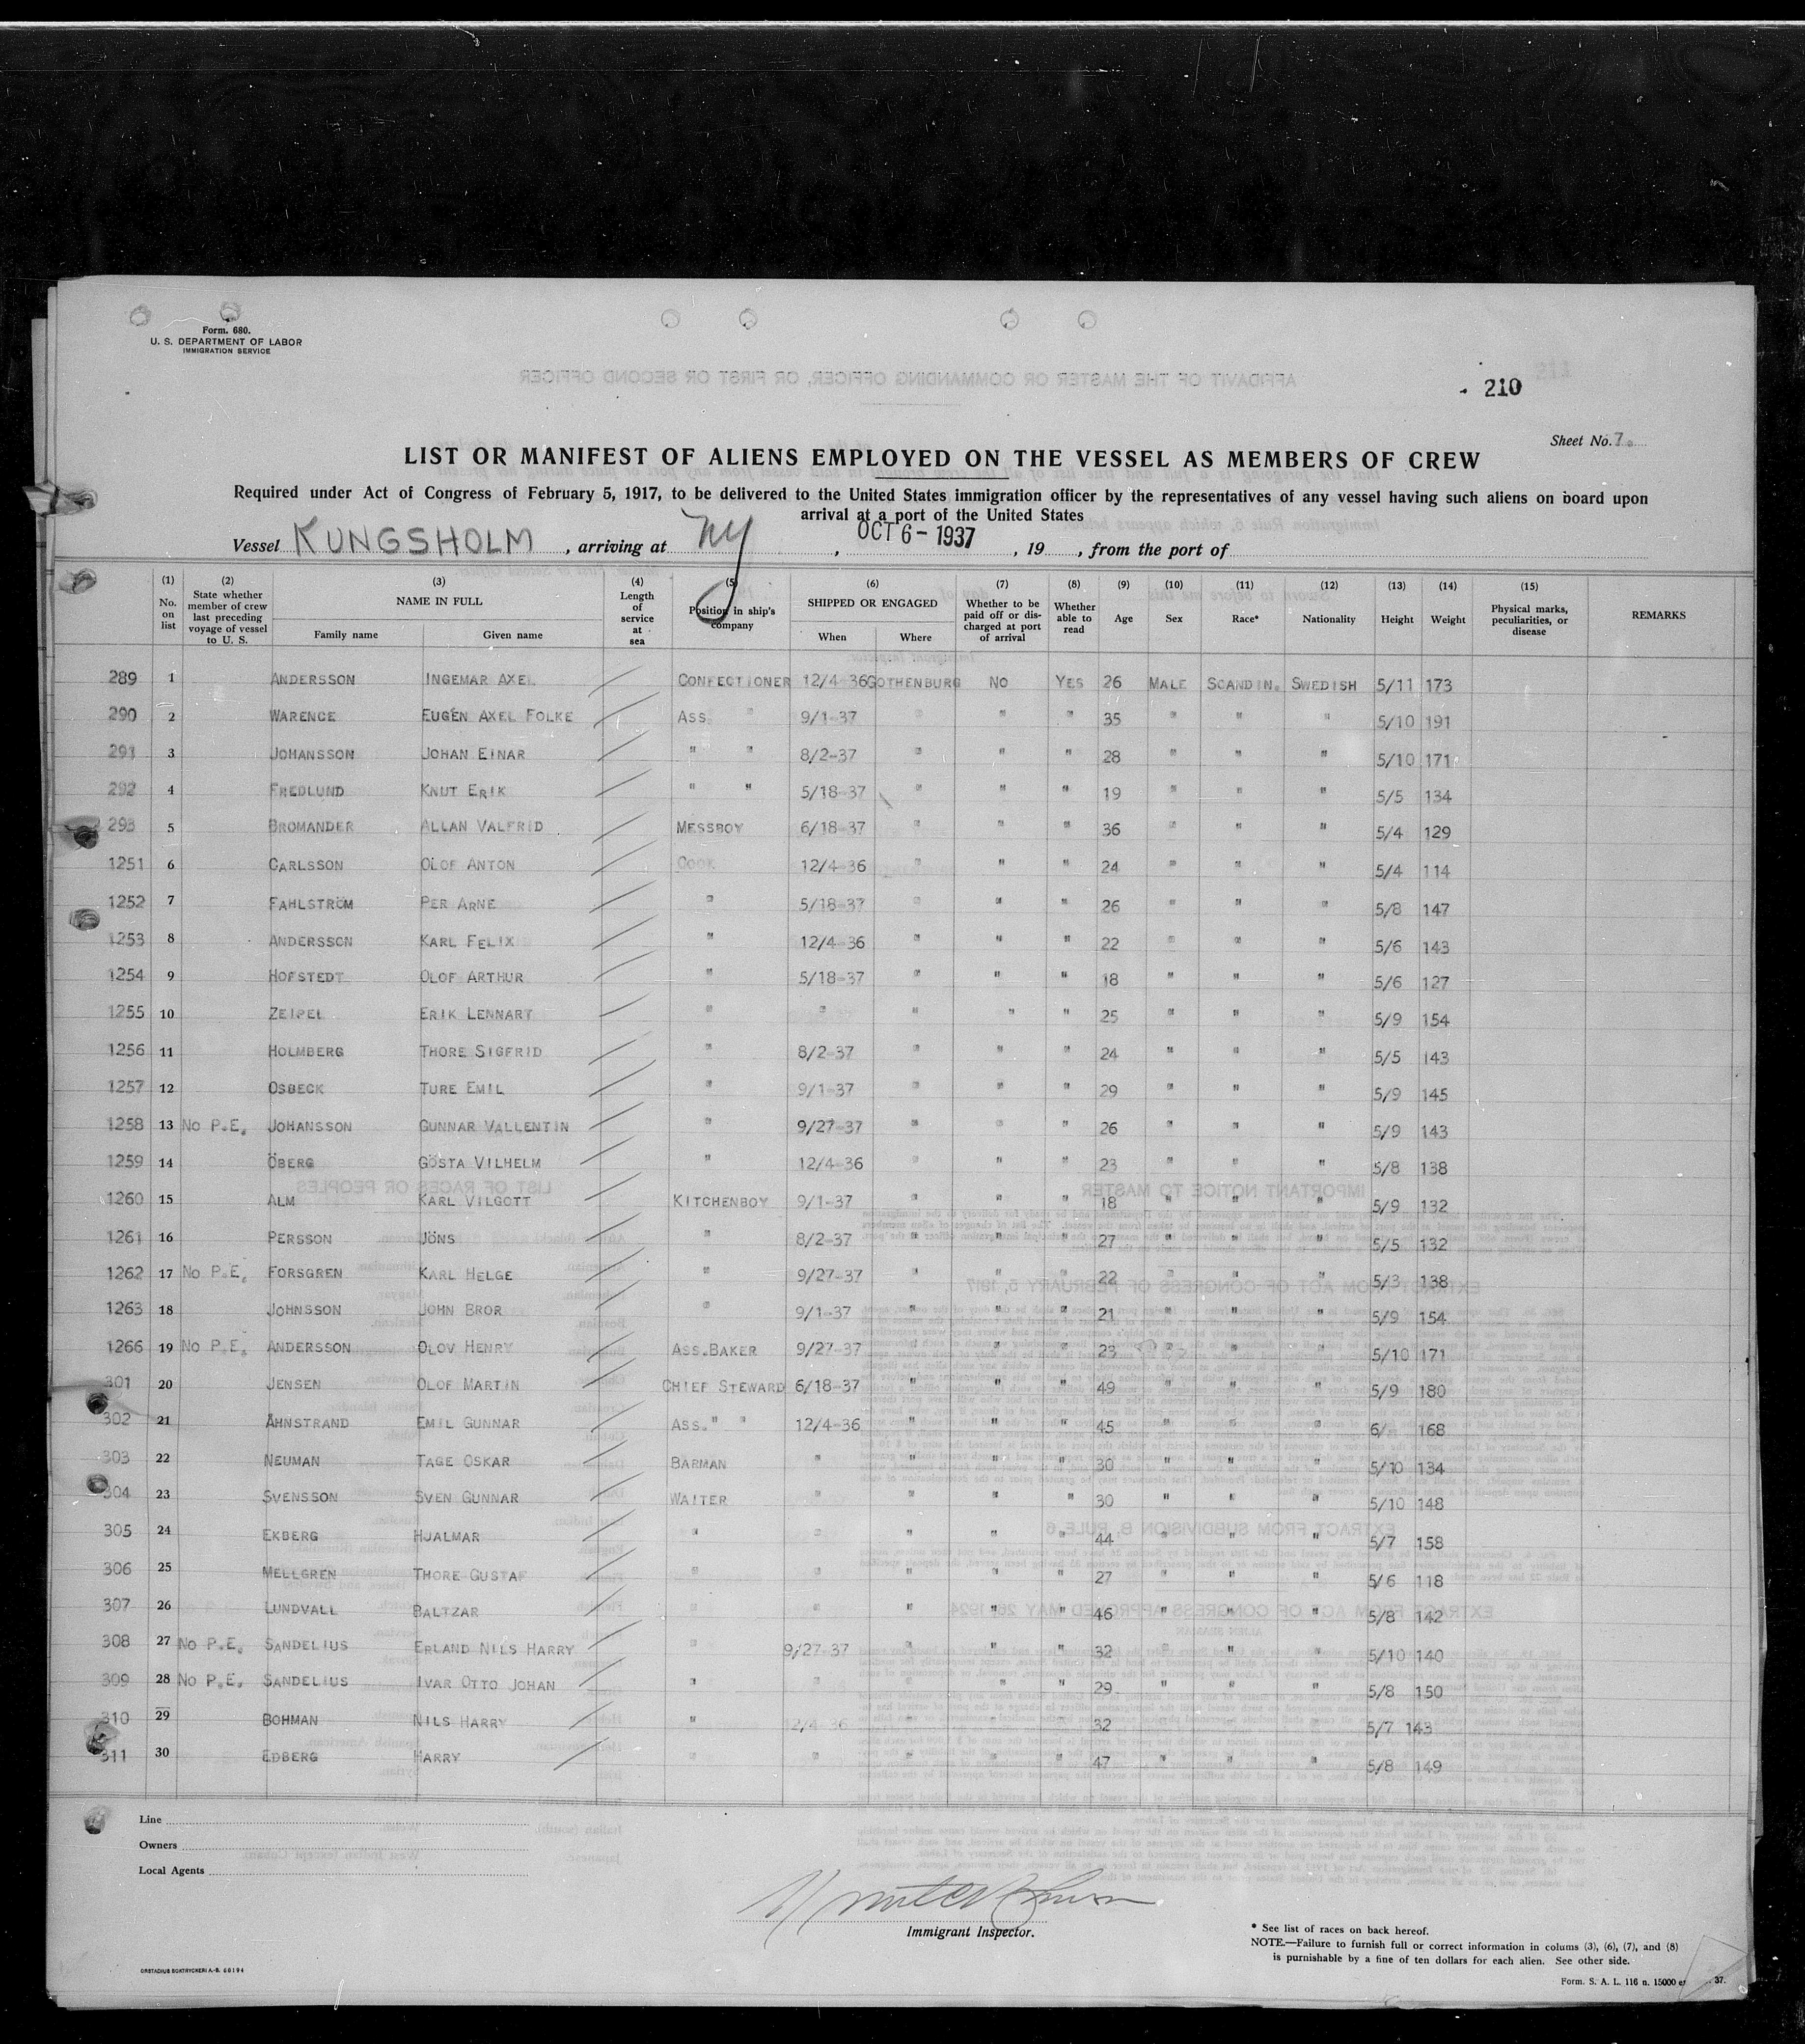 Form. 680.
U. S. DEPARTMENT OF LABOR
IMMIGRATION SERVICE
210
Sheet No. 7.
LIST OR MANIFEST OF ALIENS EMPLOYED ON THE VESSEL AS MEMBERS OF CREW
Required under Act of Congress of February 5, 1917, to be delivered to the United States immigration officer by the representatives of any vessel having such aliens on board upon
arrival at a port of the United States
Vessel KUNGSHOLM, arriving at NY, OCT 6 - 1937, 19, from the port of
(1) No. on list (2) State whether member of crew last preceding voyage of vessel to U. S. (3) NAME IN FULL Family name Given name (4) Length of service at sea (5) Position in ship's company (6) SHIPPED OR ENGAGED When Where (7) Whether to be paid off or discharged at port of arrival (8) Whether able to read (9) Age (10) Sex (11) Race* (12) Nationality (13) Height (14) Weight (15) Physical marks, peculiarities, or disease REMARKS
289 1 ANDERSSON INGEMAR AXEL CONFECTIONER 12/4-36 GOTHENBURG NO YES 26 MALE SCANDIN. SWEDISH 5/11 173
290 2 WARENCE EUGÉN AXEL FOLKE ASS. " 9/1-37 " " " 35 " " " 5/10 191
291 3 JOHANSSON JOHAN EINAR " " 8/2-37 " " " 28 " " " 5/10 171
292 4 FREDLUND KNUT ERIK " " 5/18-37 " " " 19 " " " 5/5 134
293 5 BROMANDER ALLAN VALFRID MESSBOY 6/18-37 " " " 36 " " " 5/4 129
1251 6 CARLSSON OLOF ANTON COOK 12/4-36 " " " 24 " " " 5/4 114
1252 7 FAHLSTRÖM PER ARNE " 5/18-37 " " " 26 " " " 5/8 147
1253 8 ANDERSSON KARL FELIX " 12/4-36 " " " 22 " " " 5/6 143
1254 9 HOFSTEDT OLOF ARTHUR " 5/18-37 " " " 18 " " " 5/6 127
1255 10 ZEIPEL ERIK LENNART " " " " " 25 " " " 5/9 154
1256 11 HOLMBERG THORE SIGFRID " 8/2-37 " " " 24 " " " 5/5 143
1257 12 OSBECK TURE EMIL " 9/1-37 " " " 29 " " " 5/9 145
1258 13 No P.E. JOHANSSON GUNNAR VALLENTIN " 9/27-37 " " " 26 " " " 5/9 143
1259 14 ÖBERG GÖSTA VILHELM " 12/4-36 " " " 23 " " " 5/8 138
1260 15 ALM KARL VILGOTT KITCHENBOY 9/1-37 " " " 18 " " " 5/9 132
1261 16 PERSSON JÖNS " 8/2-37 " " " 27 " " " 5/5 132
1262 17 No P.E. FORSGREN KARL HELGE " 9/27-37 " " " 22 " " " 5/3 138
1263 18 JOHNSSON JOHN BROR " 9/1-37 " " " 21 " " " 5/9 154
1266 19 No P.E. ANDERSSON OLOV HENRY ASS.BAKER 9/27-37 " " " 23 " " " 5/10 171
301 20 JENSEN OLOF MARTIN CHIEF STEWARD 6/18-37 " " " 49 " " " 5/9 180
302 21 ÅHNSTRAND EMIL GUNNAR ASS. " " 12/4-36 " " " 45 " " " 6/ 168
303 22 NEUMAN TAGE OSKAR BARMAN " " " " 30 " " " 5/10 134
304 23 SVENSSON SVEN GUNNAR WAITER " " " " 30 " " " 5/10 148
305 24 EKBERG HJALMAR " " " " " 44 " " " 5/7 158
306 25 MELLGREN THORE GUSTAF " " " " " 27 " " " 5/6 118
307 26 LUNDVALL BALTZAR " " " " 46 " " " 5/8 142
308 27 No P.E. SANDELIUS ERLAND NILS HARRY " 9/27-37 " " " 32 " " " 5/10 140
309 28 No P.E. SANDELIUS IVAR OTTO JOHAN " " " " " 29 " " " 5/8 150
310 29 BOHMAN NILS HARRY " 12/4-36 " " " 32 " " " 5/7 143
311 30 EDBERG HARRY " " " " " 47 " " " 5/8 149
Line
Owners
Local Agents
Immigrant Inspector.
* See list of races on back hereof.
NOTE.—Failure to furnish full or correct information in colums (3), (6), (7), and (8)
is purnishable by a fine of ten dollars for each alien. See other side.
ORSTADIUS BOKTRYCKERI A.-B. 66194
Form. S. A. L. 116 n. 15000 37.